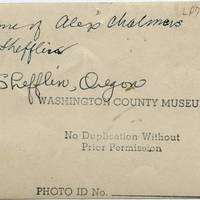 me of Alex Chalmers
Shefflin
Shefflin, Oregon
WASHINGTON COUNTY MUSEU
No Duplication Without
Prior Permission
PHOTO ID No.